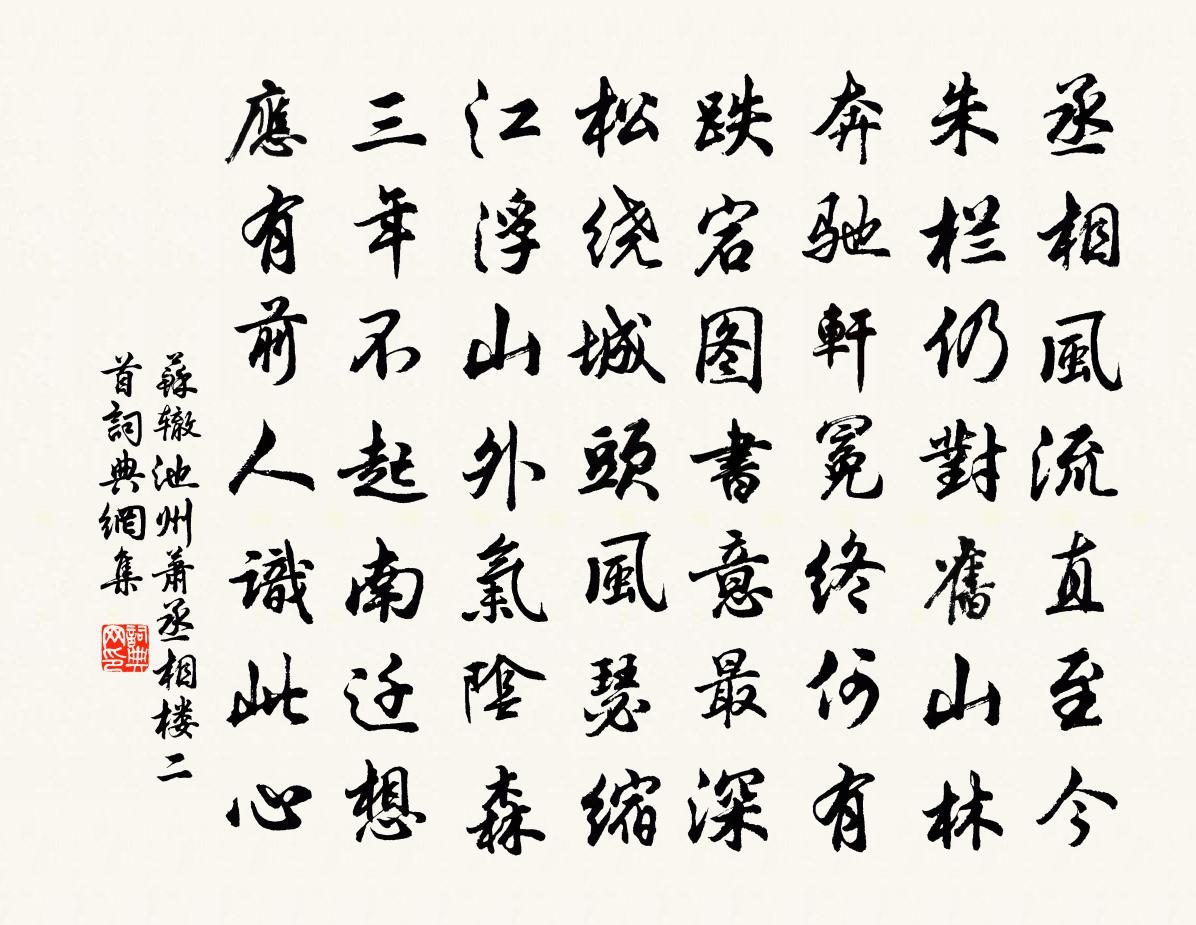 丞相風流直至今
朱栏仍對舊山林
奔驰軒冕终何有
跌宕图書意最深
松绕城頭風瑟缩
江浮山外氣陰森
三年不起南迁想
應有前人識此心
蘇辙池州萧丞相楼二
首詞典網集
詞典
网印